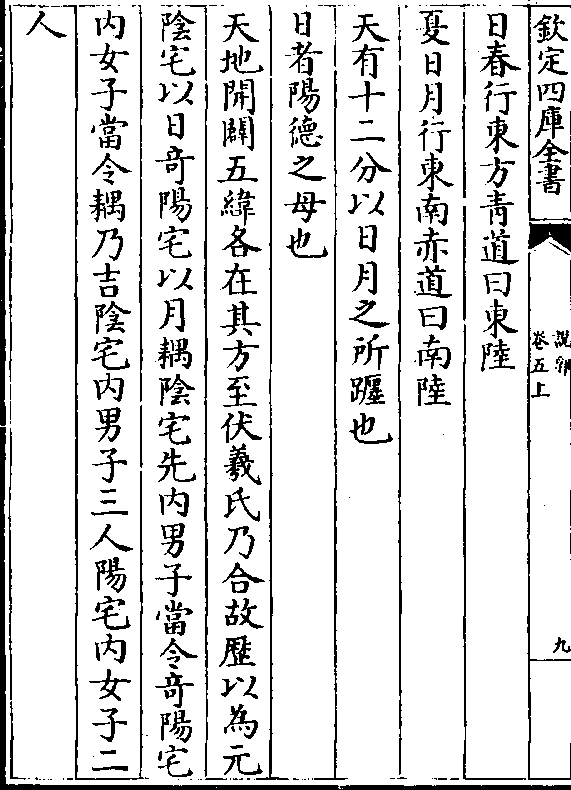 欽定四庫全書
說郛
卷五上
九
日春行東方青道曰東陸
夏日月行東南赤道曰南陸
天有十二分以日月之所躔也
日者陽德之母也
天地開闢五緯各在其方至伏羲氏乃合故歷以為元
陰宅以日奇陽宅以月耦陰宅先内男子當令奇陽宅
内女子當令耦乃吉陰宅内男子三人陽宅内女子二
人